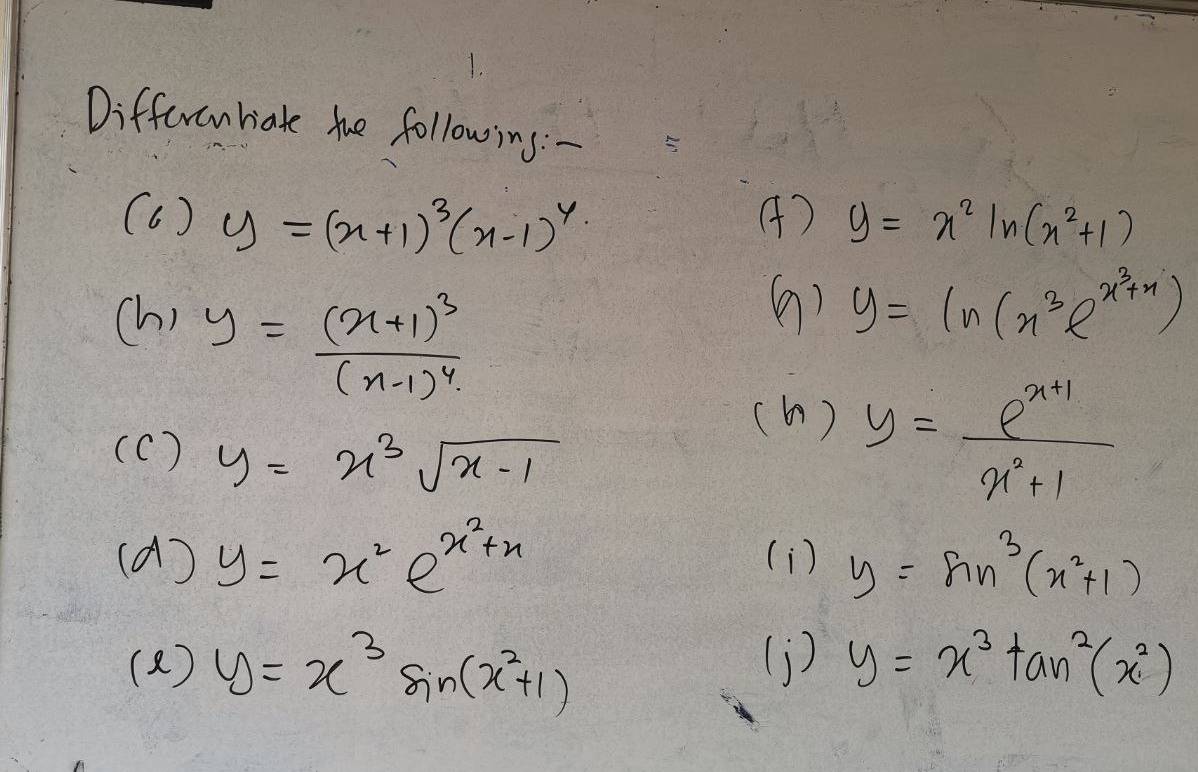 1.
Differentiate the following:-
(a) y = (x+1)³(x-1)⁴.
(b) y = (x+1)³/(x-1)⁴.
(c) y = x³ √(x-1)
(d) y = x² e^(x²+x)
(e) y = x³ sin(x²+1)
(f) y = x² ln(x²+1)
(g) y = ln(x³e^(x³+x))
(h) y = e^(x+1)/(x²+1)
(i) y = sin³(x²+1)
(j) y = x³ tan²(x²)